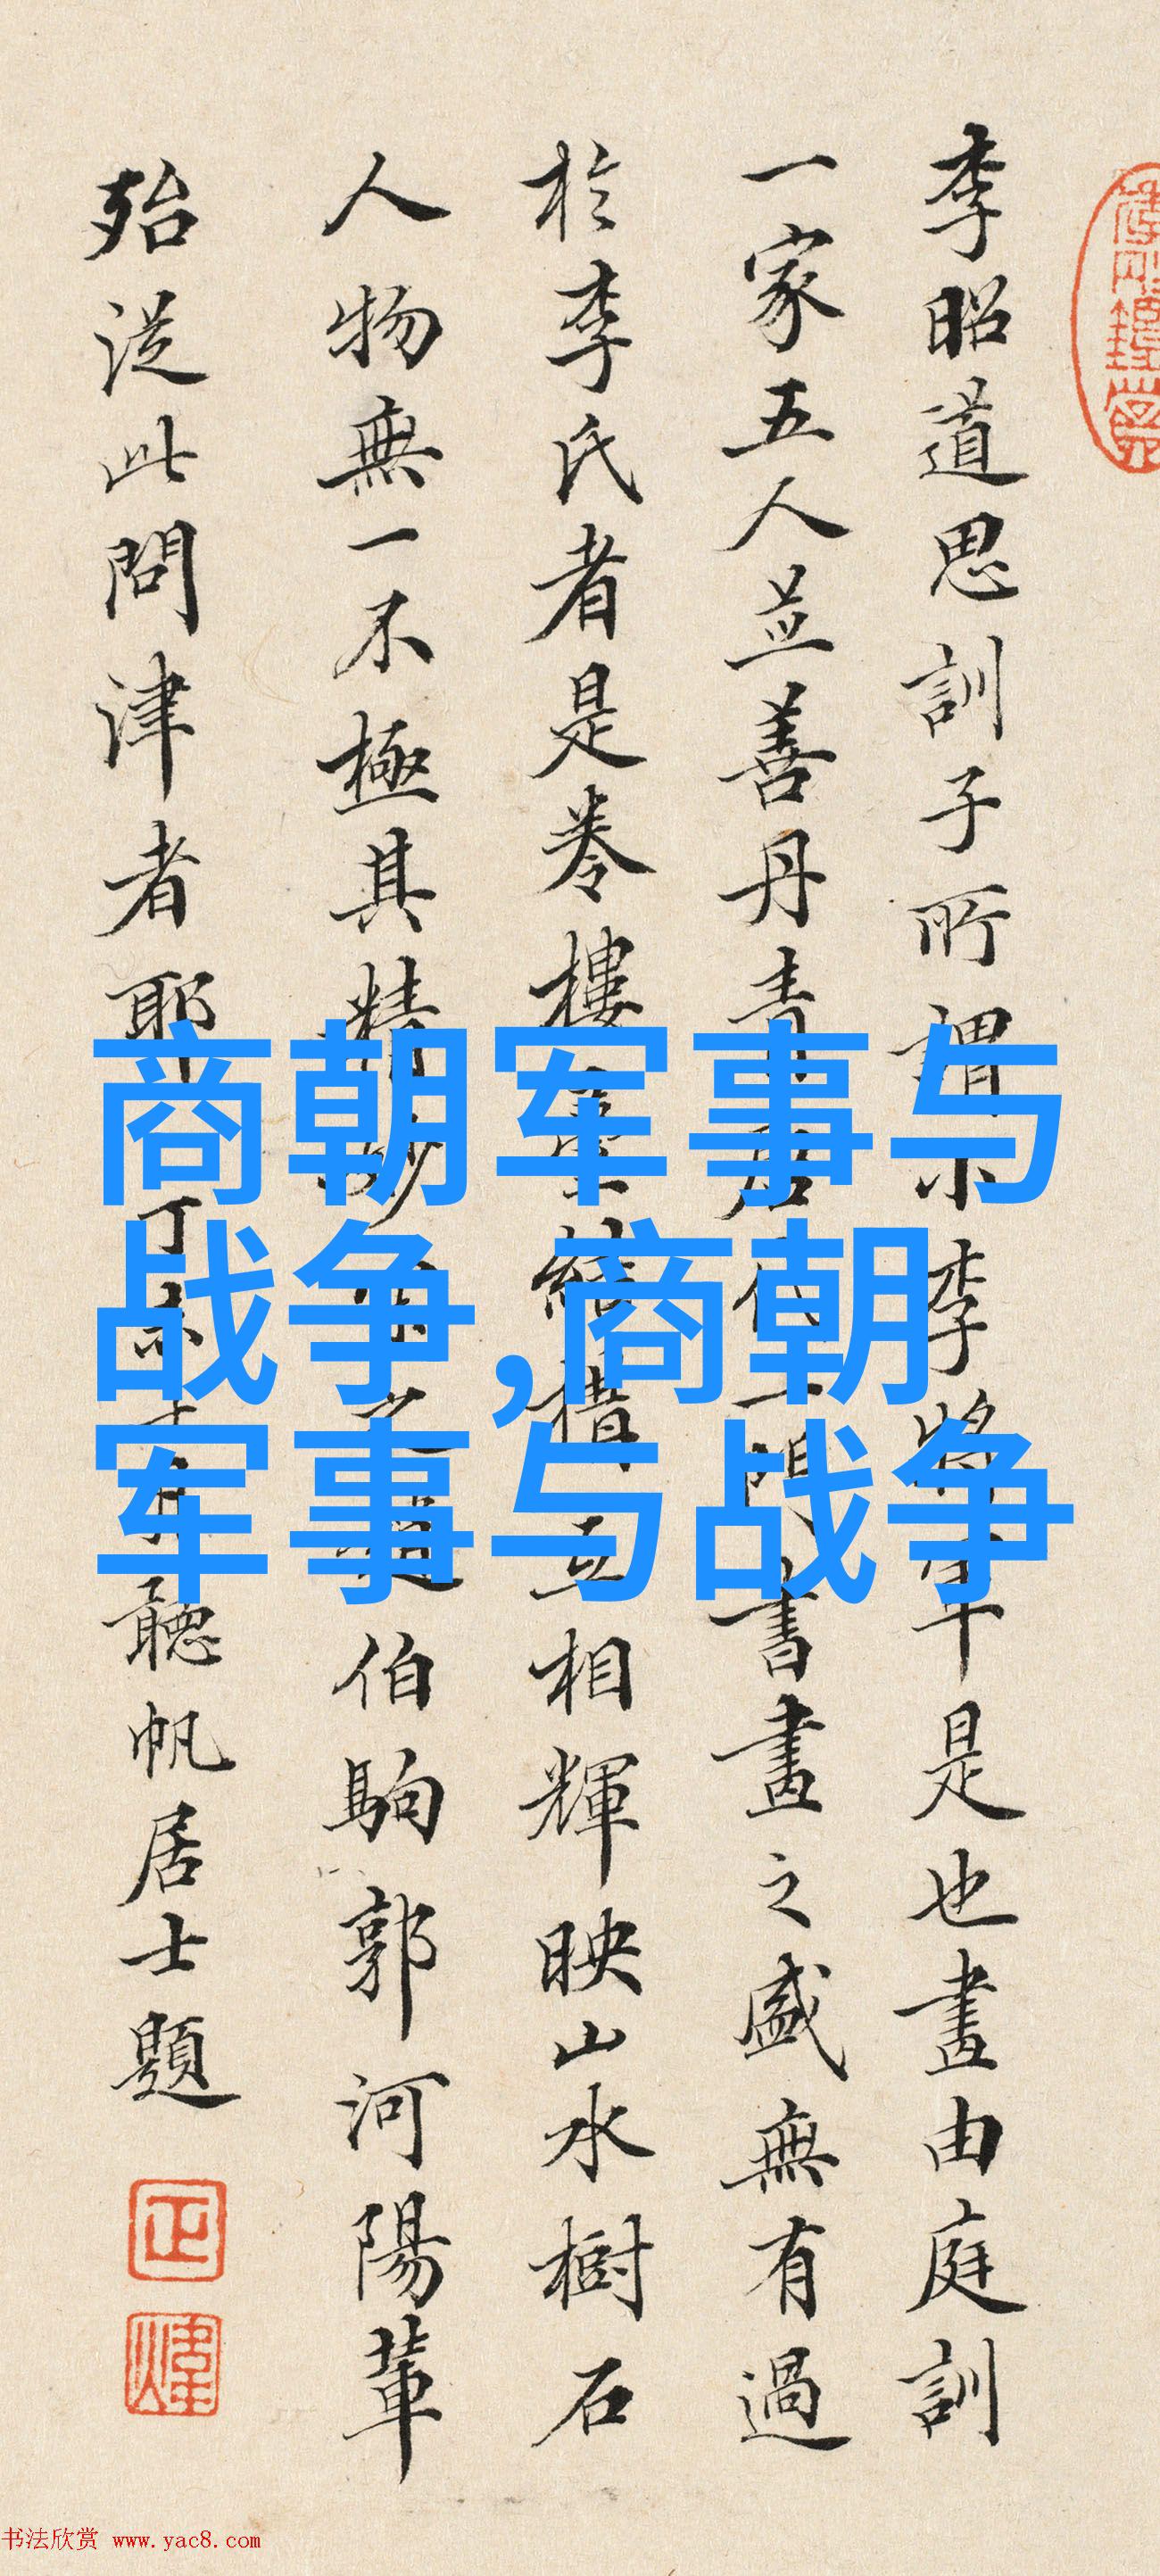 李昭道思訓子所謂小李將軍是也畫由庭訓
一家五人並善丹青代一門書畫之盛無有過
於李氏者是卷樓臺結構互相輝映山水樹石
人物無一不極其精妙趙伯駒郭河陽輩
殆從此問津者耶丁未聽帆居士題
正煒
商朝军事与
战争,商朝
军事与战争
书法欣赏 www.yac8.com